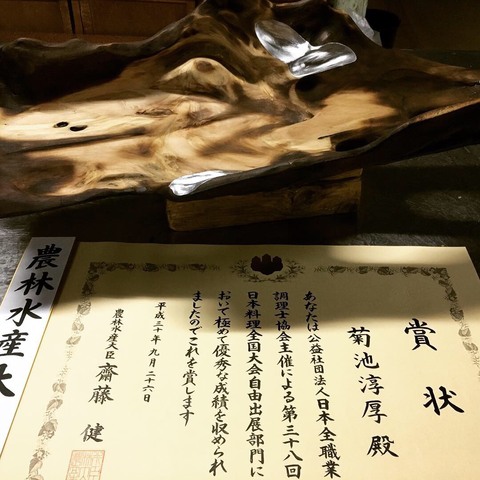 賞状
菊池淳厚 殿
あなたは公益社団法人日本全職業
調理士協会主催による第三十八回
日本料理全国大会自由出展部門に
おいて極めて優秀な成績を収められ
ましたのでこれを賞します
平成三十年九月二十六日
農林水産大臣 齋藤 健
農林水産大